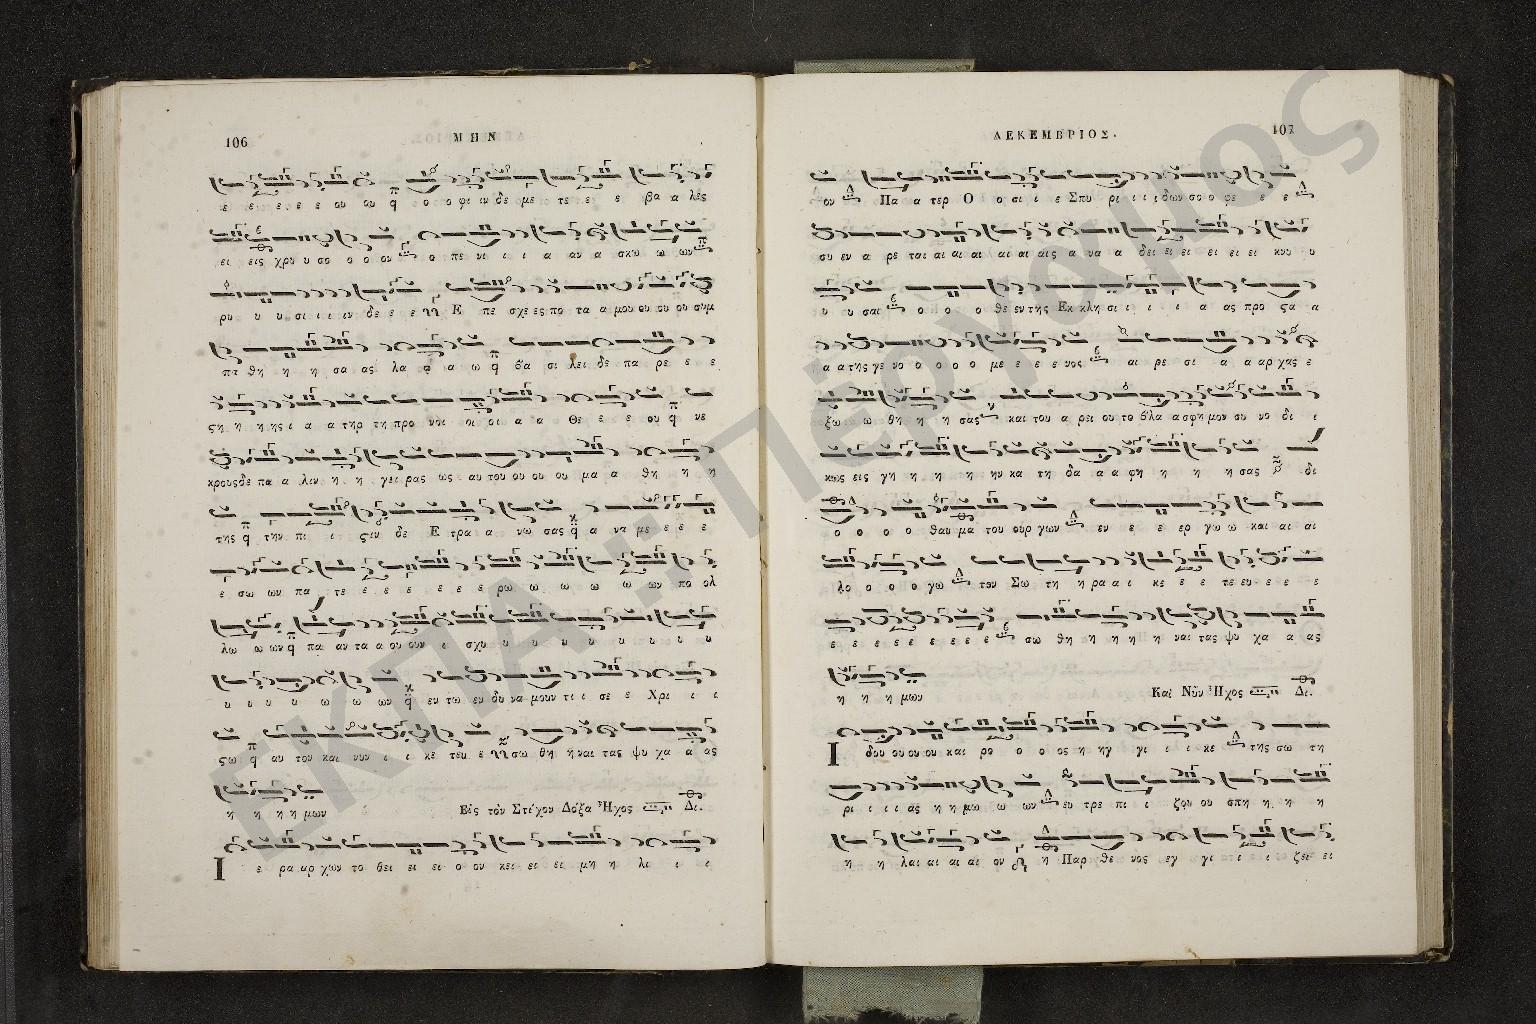 106
ΜΗΝ
ε ε ε ε ε ου ου ο ο φι ιν δε με τε ε ε βα α λες
ει εις χρυ υ σο ο ο ον ο πε νι ι ι α αν α σκω ω ων
ρυ υ υ σι ι ι ιν δε ε ε Ε πε σχε ες πο τα α μου ου ου ου συμ
πα θη η η σα ας λα α α ω βα σι λει δε πα ρε ε ε
ςη η η ης ι α α τηρ τη προ νοι οι οι α α Θε ε ε ε ου νε
κρους δε πα α λιν η η γει ρας ως αυ του ου ου ου μα α θη η η
της την πι ι ςιν δε Ε τρα α νω σας α να με ε ε ε
ε σω ων πα τε ε ε ε ε ε ε ε ρω ω ω ω ω ων πο ολ
λω ω ων πα αν τα α ου ουν ι σχυ υ υ υ υ υ υ υ υ
υ υ υ υ ω ω ων εν τω εν δυ να μουν τι ι σε ε Χρι ι ι
ςω αυ τον και νυν ι ι κε τευ ε σω θη η ναι τας ψυ χα α ας
η η η η μων
Εἰς τὸν Στίχον Δόξα Ἦχος Δι.
Ι ε ρα αρ χων το θει ει ει ο ον κει ει ει μη η λι ι ι
ΔΕΚΕΜΒΡΙΟΣ.
107
ον Πα α τερ Ο ο σι ι ε Σπυ ρι ι ι ι δων σο ο φε ε ε
συ εν α ρε ται αι αι αι αι αι αις α να α δει ει ει ει ει ει κνυ υ
υ υ σαι ο ο ο θε εν της Εκ κλη σι ι ι ι α ας προ ςα α
α α της γε νο ο ο ο ο με ε ε ε νος αι ρε σι α α αρ χας ε
ξω ω θη η η σας και του α ρει ου το βλα ασ φη μον συ νο δι ι
κως εις γη η η η ην κα τη δα α α φη η η η η σας δι
ο ο ο ο θαυ μα του ουρ γων εν ε ε ερ γω ω και αι αι
λο ο ο ο γω τον Σω τη η ρα α ι κε ε ε τε ευ ε ε ε
ε ε ε ε ε ε ε ε ε σω θη η η η η η ναι τας ψυ χα α ας
η η η μων
Καὶ Νῦν Ἦχος Δι.
Ι δου ου ου ου και ρο ο ο ος η ηγ γι ι ι κε της σω τη
ρι ι ι ι ας η η μω ω ων ευ τρε πι ι ζου ου σπη η η η
η η λαι αι αι αι ον η Παρ θε νος εγ γι ι ι ζει ει